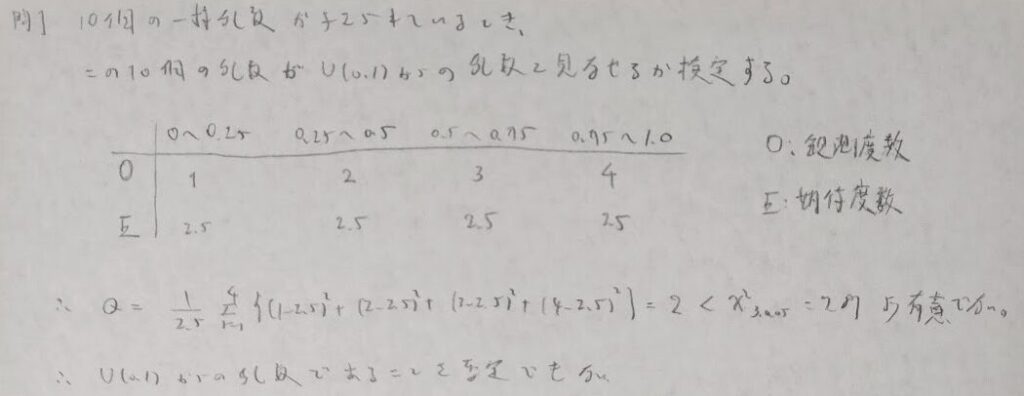 問] 10個の一様乱数が与えられているとき、
この10個の乱数がU(0,1)からの乱数と見なせるか検定する。
0~0.25 0.25~0.5 0.5~0.75 0.75~1.0
O 1 2 3 4
O: 観測度数
E 2.5 2.5 2.5 2.5
E: 期待度数
∴ Q = 1/2.5 Σ {(1-2.5)²+(2-2.5)²+(3-2.5)²+(4-2.5)²} = 2 < χ²3,0.05 = より有意でない。
∴ U(0,1)からの乱数であることを否定できない